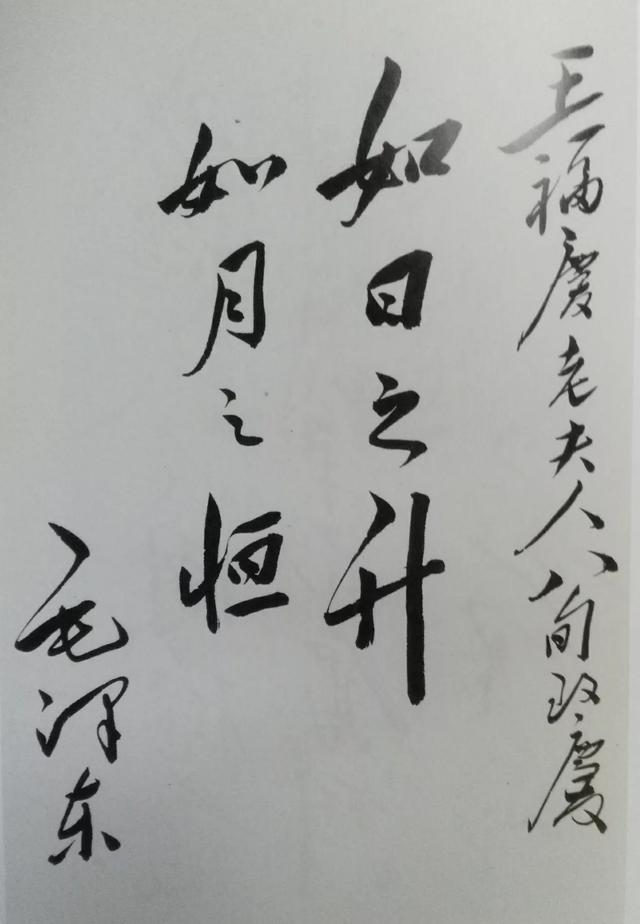 王福慶老夫人八旬玖慶
如日之升
如月之恒
毛泽东